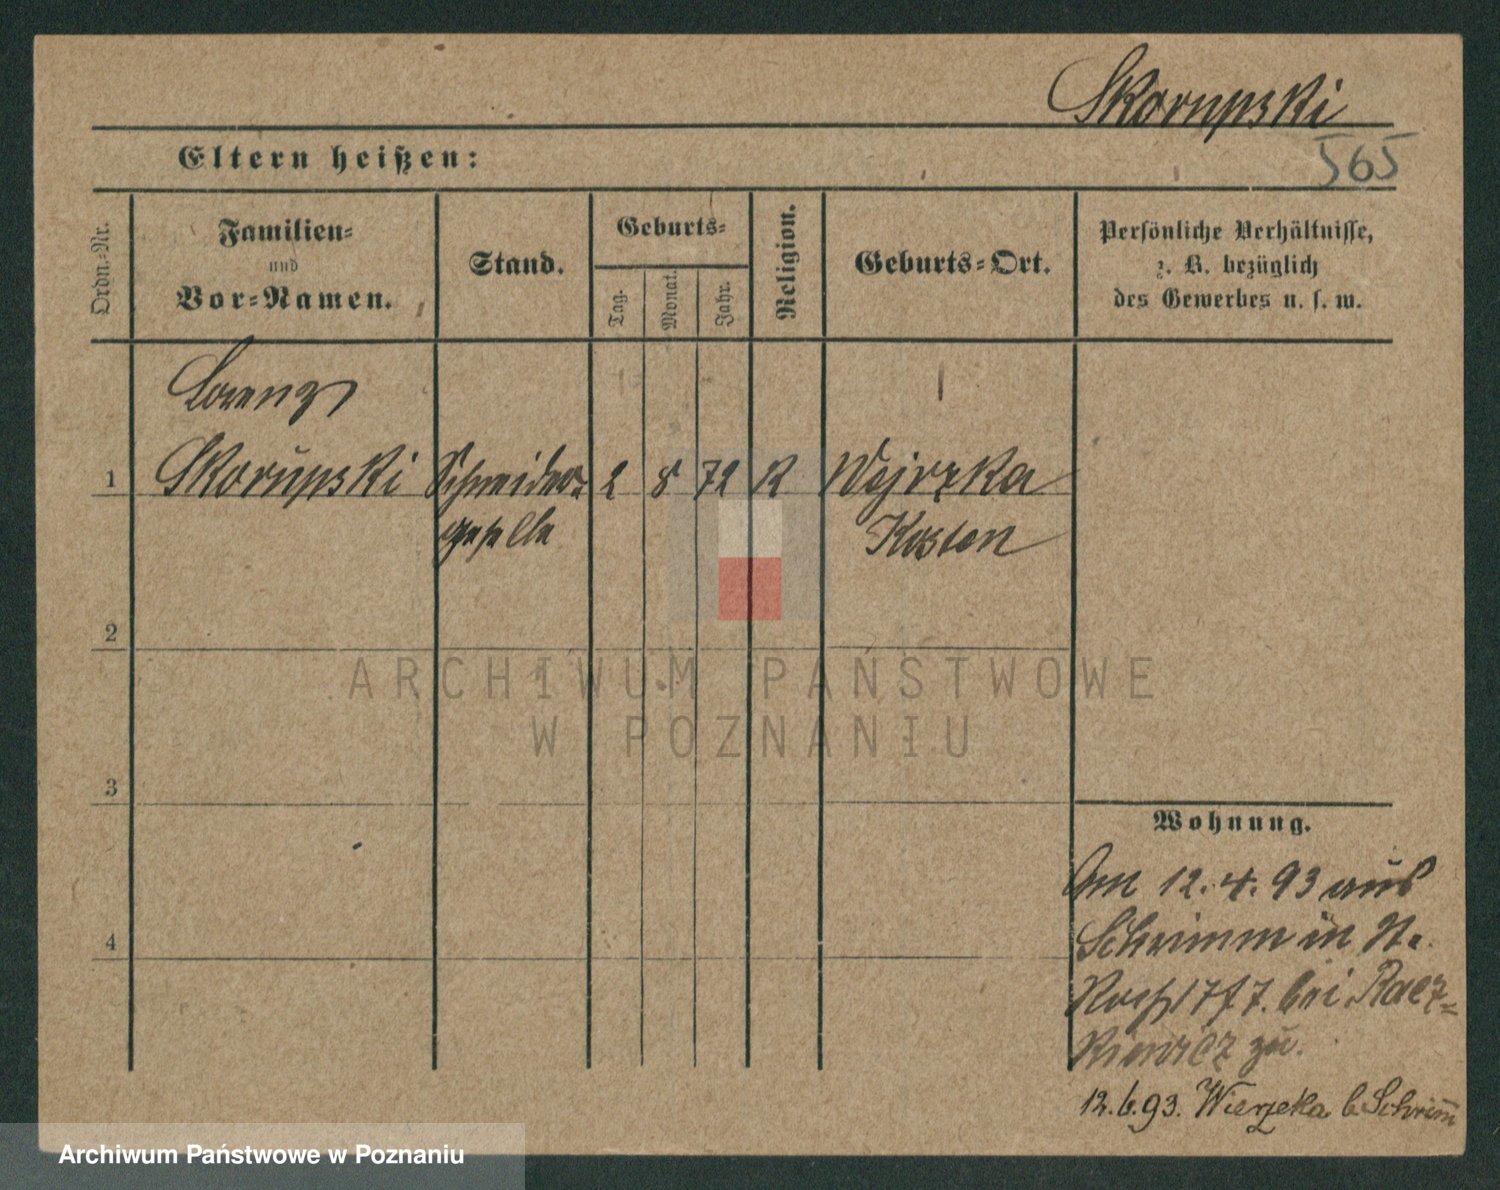 Skorupski
Eltern heißen:
565
Ordn.-Nr.
Familien-
und
Vor-Namen.
Stand.
Geburts-
Tag.
Monat.
Jahr.
Religion.
Geburts-Ort.
Persönliche Verhältnisse,
z. B. bezüglich
des Gewerbes u. s. w.
Lorenz
1 Skorupski Schneider- 2 8 72 K Wejrzka
geselle Kosten
2
ARCHIWUM PAŃSTWOWE
W POZNANIU
3
Wohnung.
Am 12.4.93 aus
4
Schrimm in St.
Roch 17 7. bei Racz-
kiewicz zu.
12.6.93. Wierzeka b. Schrim̄
Archiwum Państwowe w Poznaniu